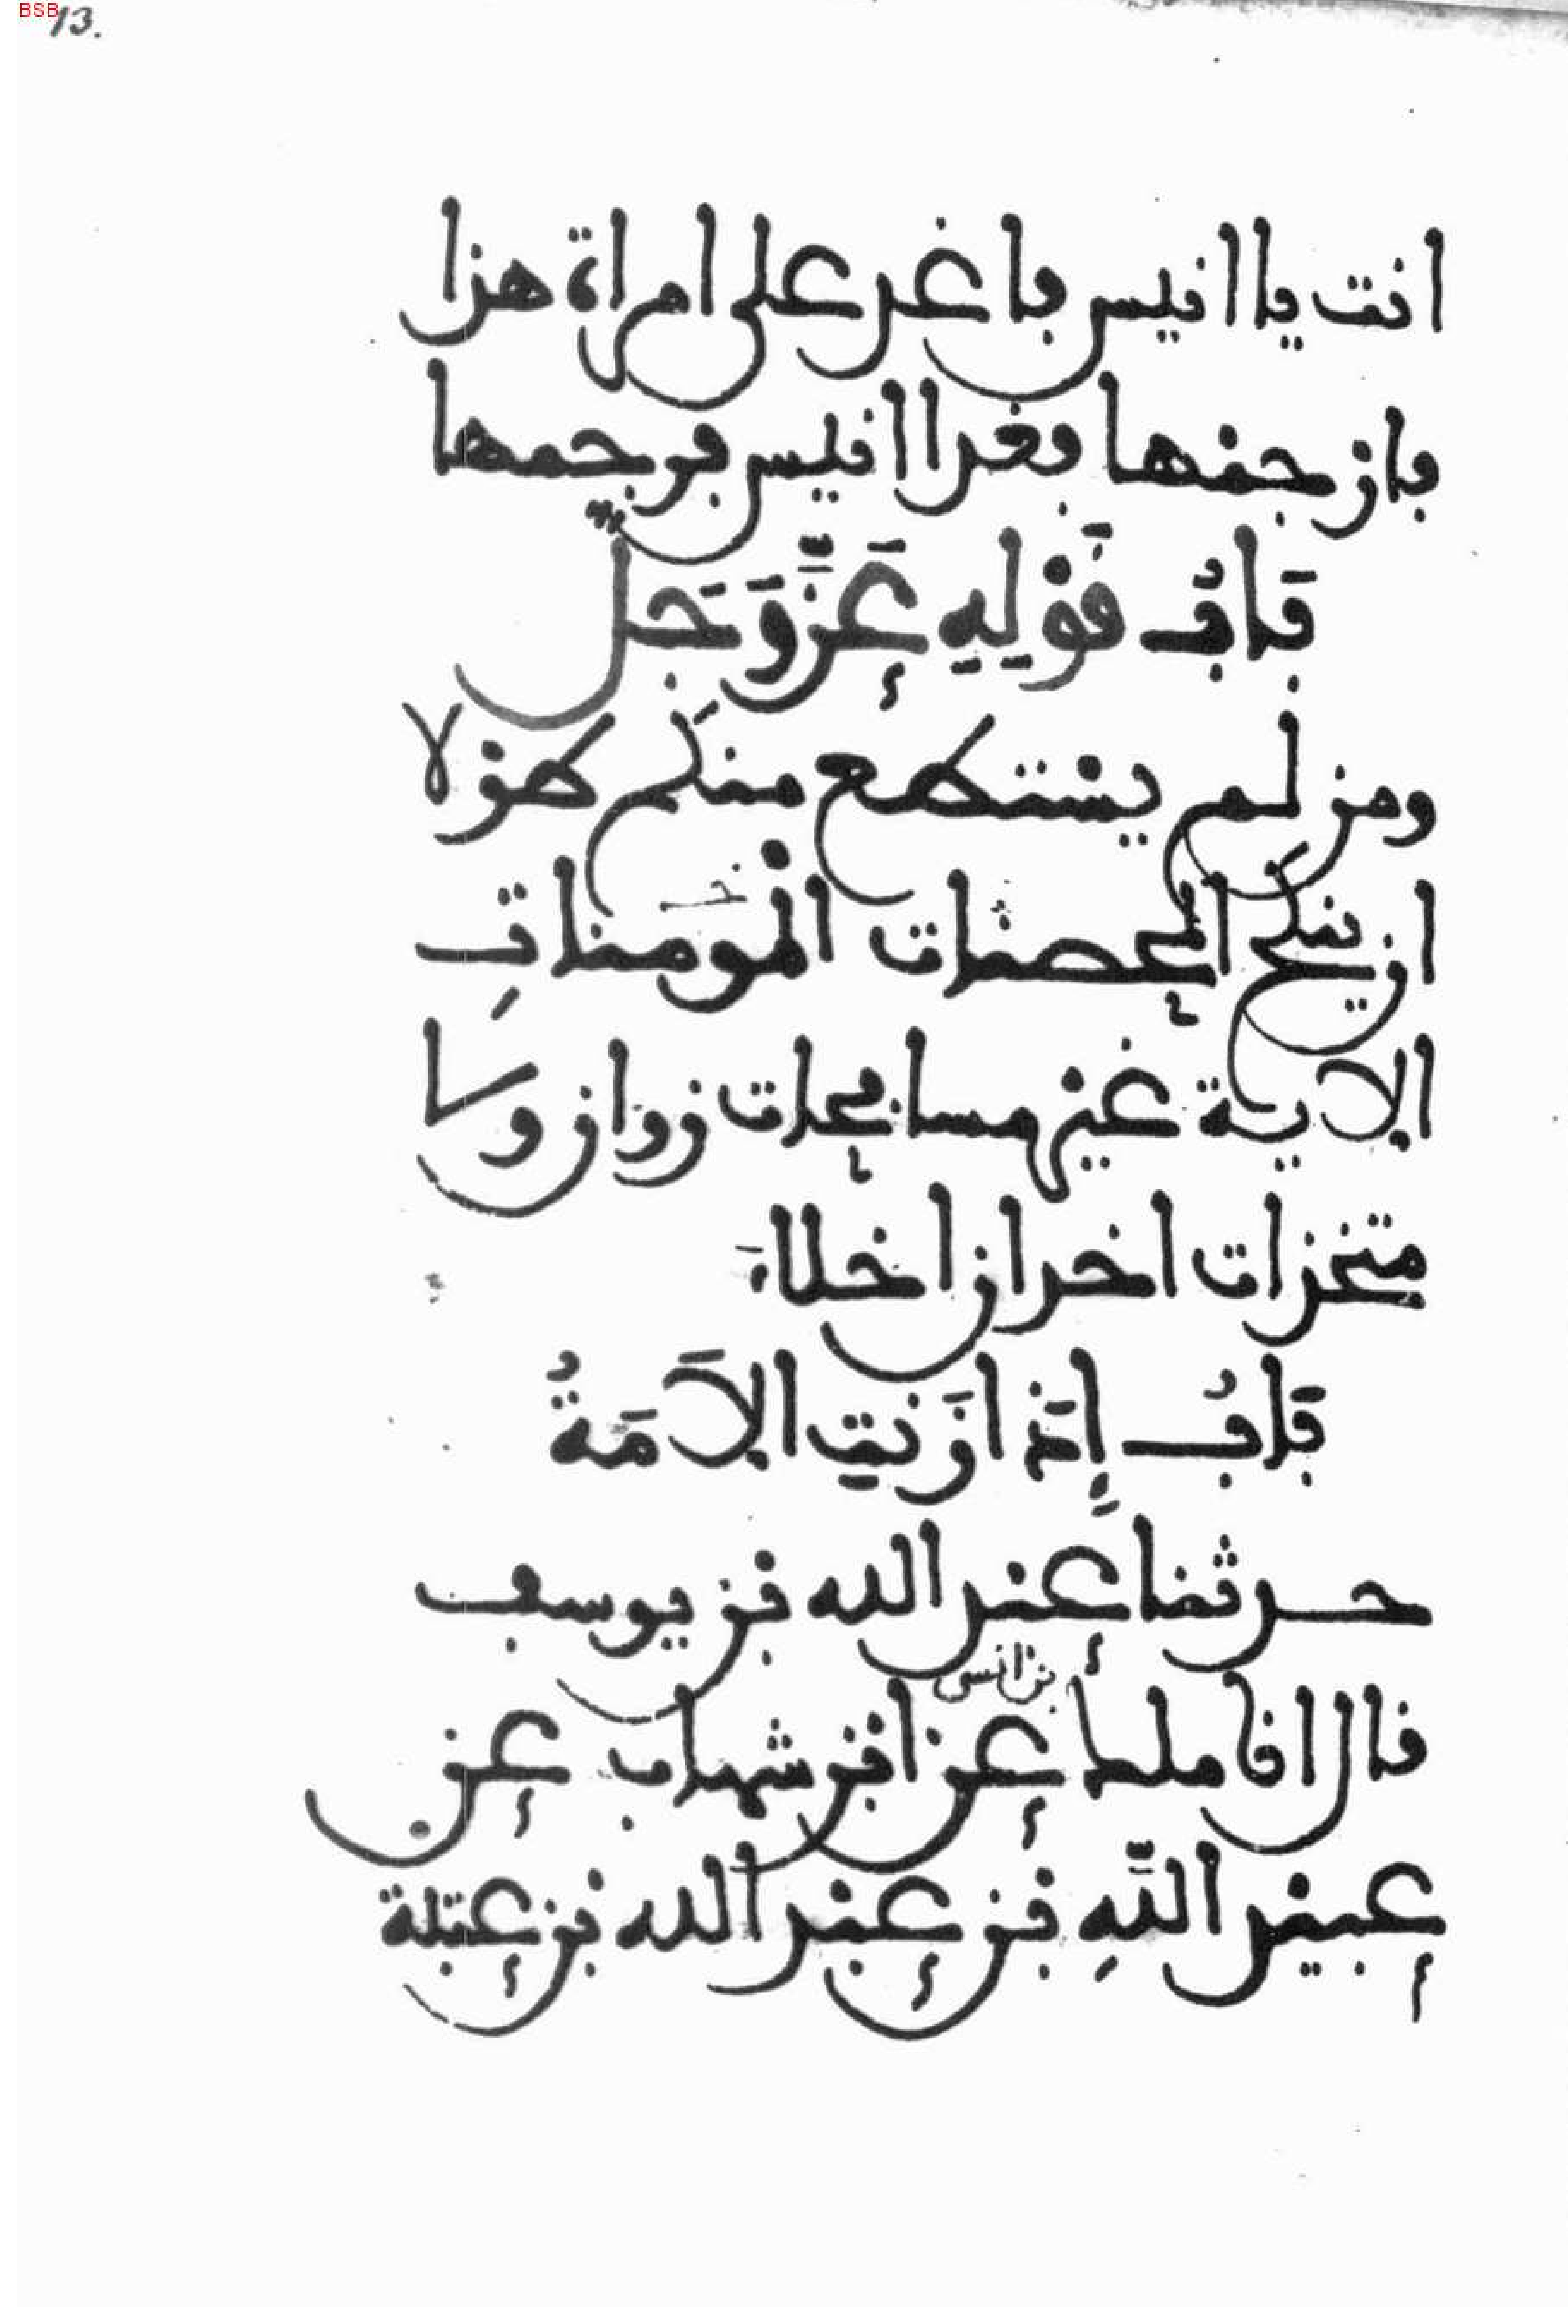 BSB
13.
انت يا انيس فاغد على امراة هذا
فارجمها فغدا انيس فرجمها
بَابُ قَوْلِهِ عَزَّ وَجَل
ومن لم يستطع منكم طولا
ان ينكح المحصنات المومناتِ
الاية غير مسافحات زوان ولا
متخذات اخدان اخلاء
بَابُ إِذَا زَنَتِ الاَمَةُ
حدثنا عبد الله بن يوسف
قال انا ملك بن انس عن ابن شهاب عن
عبيد اللَّهِ بن عبد الله بن عتبة